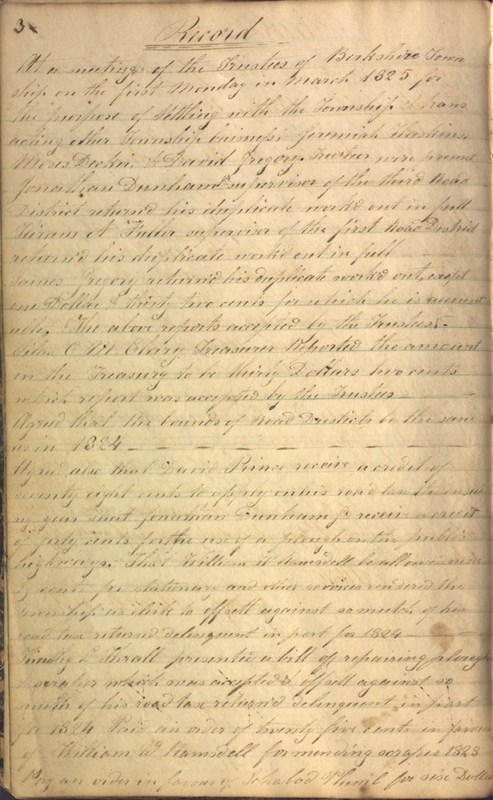 3
Record
At a meeting of the Trustees of Berkshire Town
ship on the first Monday in March 1825 for
the purpose of Settling with the Township & trans
acting other Township buiness Jeremiah
Moses Decker & David Gregory Trustees were present
Jonathan Dunham supervisor of the third Road
District returnd his duplicate workd out in full
Hiram A Fuller supervisor of the first Road District
returnd his duplicate workd out in full
James Gregory returnd his duplicate workd out except
one Dollar & thirty two cents for which he is account
able. The above reports accepted by the Trustees
C Mc Clary Treasurer Reported the amount
in the Treasury to be thirty Dollars two cents
which report was accepted by the Trustees
Agreed that the bounds of Road Districts be the same
as in 1824
Agreed also that David Prince receive a credit of
eight cents to apply on his road tax the ensu
ing year that Jonathan Dunham Jr receive a credit
of cents for the use of a plough on the public
highways. That William W be allowed
cents for stationary and other services rendered the
township as clerk to offsett against so much of his
road tax returnd delinquent in part for 1824
Timothy R Thrall presented a bill of repairing plough
& scraper which was accepted & offsett against so
much of his road tax returnd delinquent in part
for 1824 Paid an order of twenty five cents in favour
of William W for mending scraper 1823
Pay an order in favour of for six Dollars